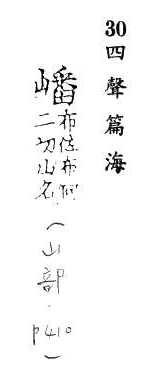 30四聲篇海
嶓布佐布何
二切山名
(山部·p410)